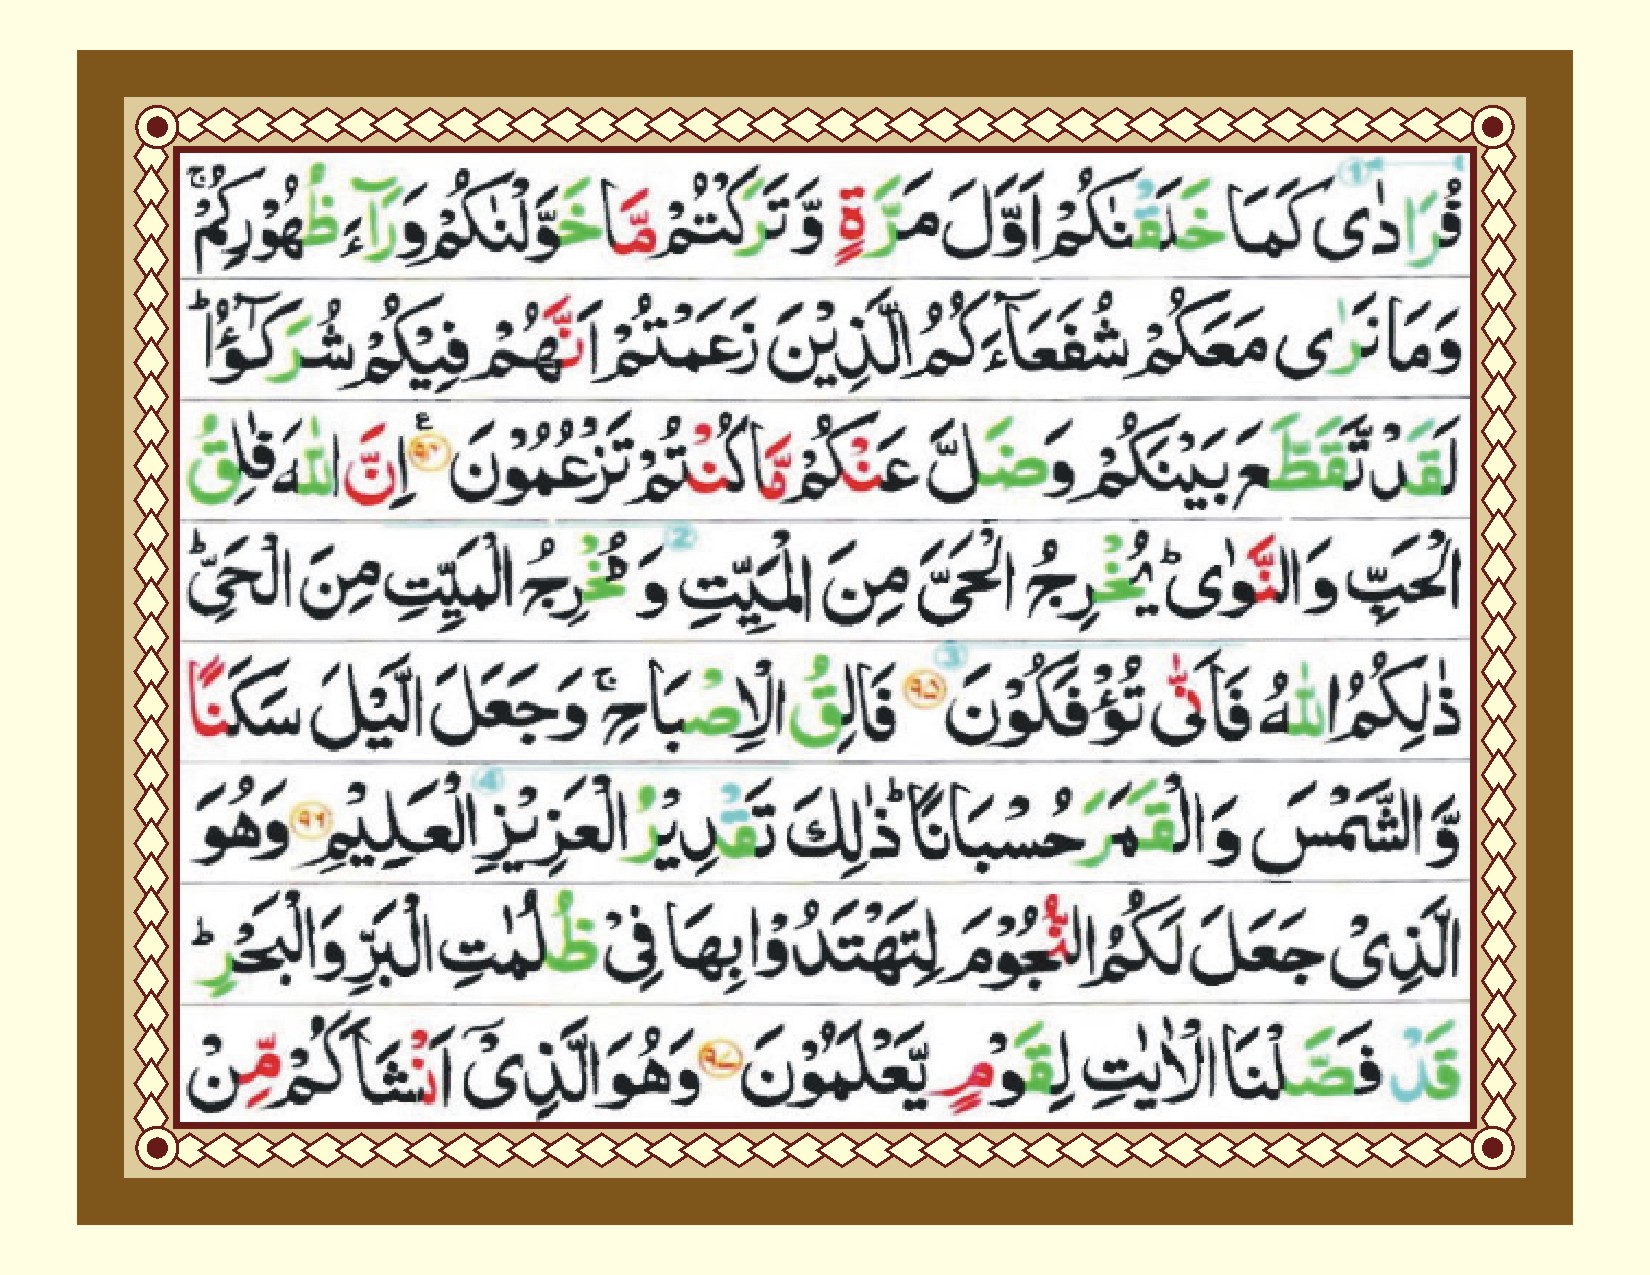 فُرَادٰى كَمَا خَلَقْنٰكُمْ اَوَّلَ مَرَّةٍ وَّ تَرَكْتُمْ مَّا خَوَّلْنٰكُمْ وَرَآءَ ظُهُوْرِكُمْ ۚ
وَمَا نَرٰى مَعَكُمْ شُفَعَآءَكُمُ الَّذِيْنَ زَعَمْتُمْ اَنَّهُمْ فِيْكُمْ شُرَكٰٓؤُا ؕ
لَقَدْ تَّقَطَّعَ بَيْنَكُمْ وَضَلَّ عَنْكُمْ مَّا كُنْتُمْ تَزْعُمُوْنَ ۹۴ ع اِنَّ اللّٰهَ فٰلِقُ
الْحَبِّ وَ النَّوٰى ؕ يُخْرِجُ الْحَىَّ مِنَ الْمَيِّتِ وَ مُخْرِجُ الْمَيِّتِ مِنَ الْحَىِّ ؕ
ذٰلِكُمُ اللّٰهُ فَاَنّٰى تُؤْفَكُوْنَ ۹۵ فَالِقُ الْاِصْبَاحِ ۚ وَ جَعَلَ الَّيْلَ سَكَنًا
وَّ الشَّمْسَ وَ الْقَمَرَ حُسْبَانًا ؕ ذٰلِكَ تَقْدِيْرُ الْعَزِيْزِ الْعَلِيْمِ ۹۶ وَهُوَ
الَّذِىْ جَعَلَ لَكُمُ النُّجُوْمَ لِتَهْتَدُوْا بِهَا فِىْ ظُلُمٰتِ الْبَرِّ وَالْبَحْرِ ؕ
قَدْ فَصَّلْنَا الْاٰيٰتِ لِقَوْمٍ يَّعْلَمُوْنَ ۹۷ وَهُوَ الَّذِىْٓ اَنْشَاَكُمْ مِّنْ